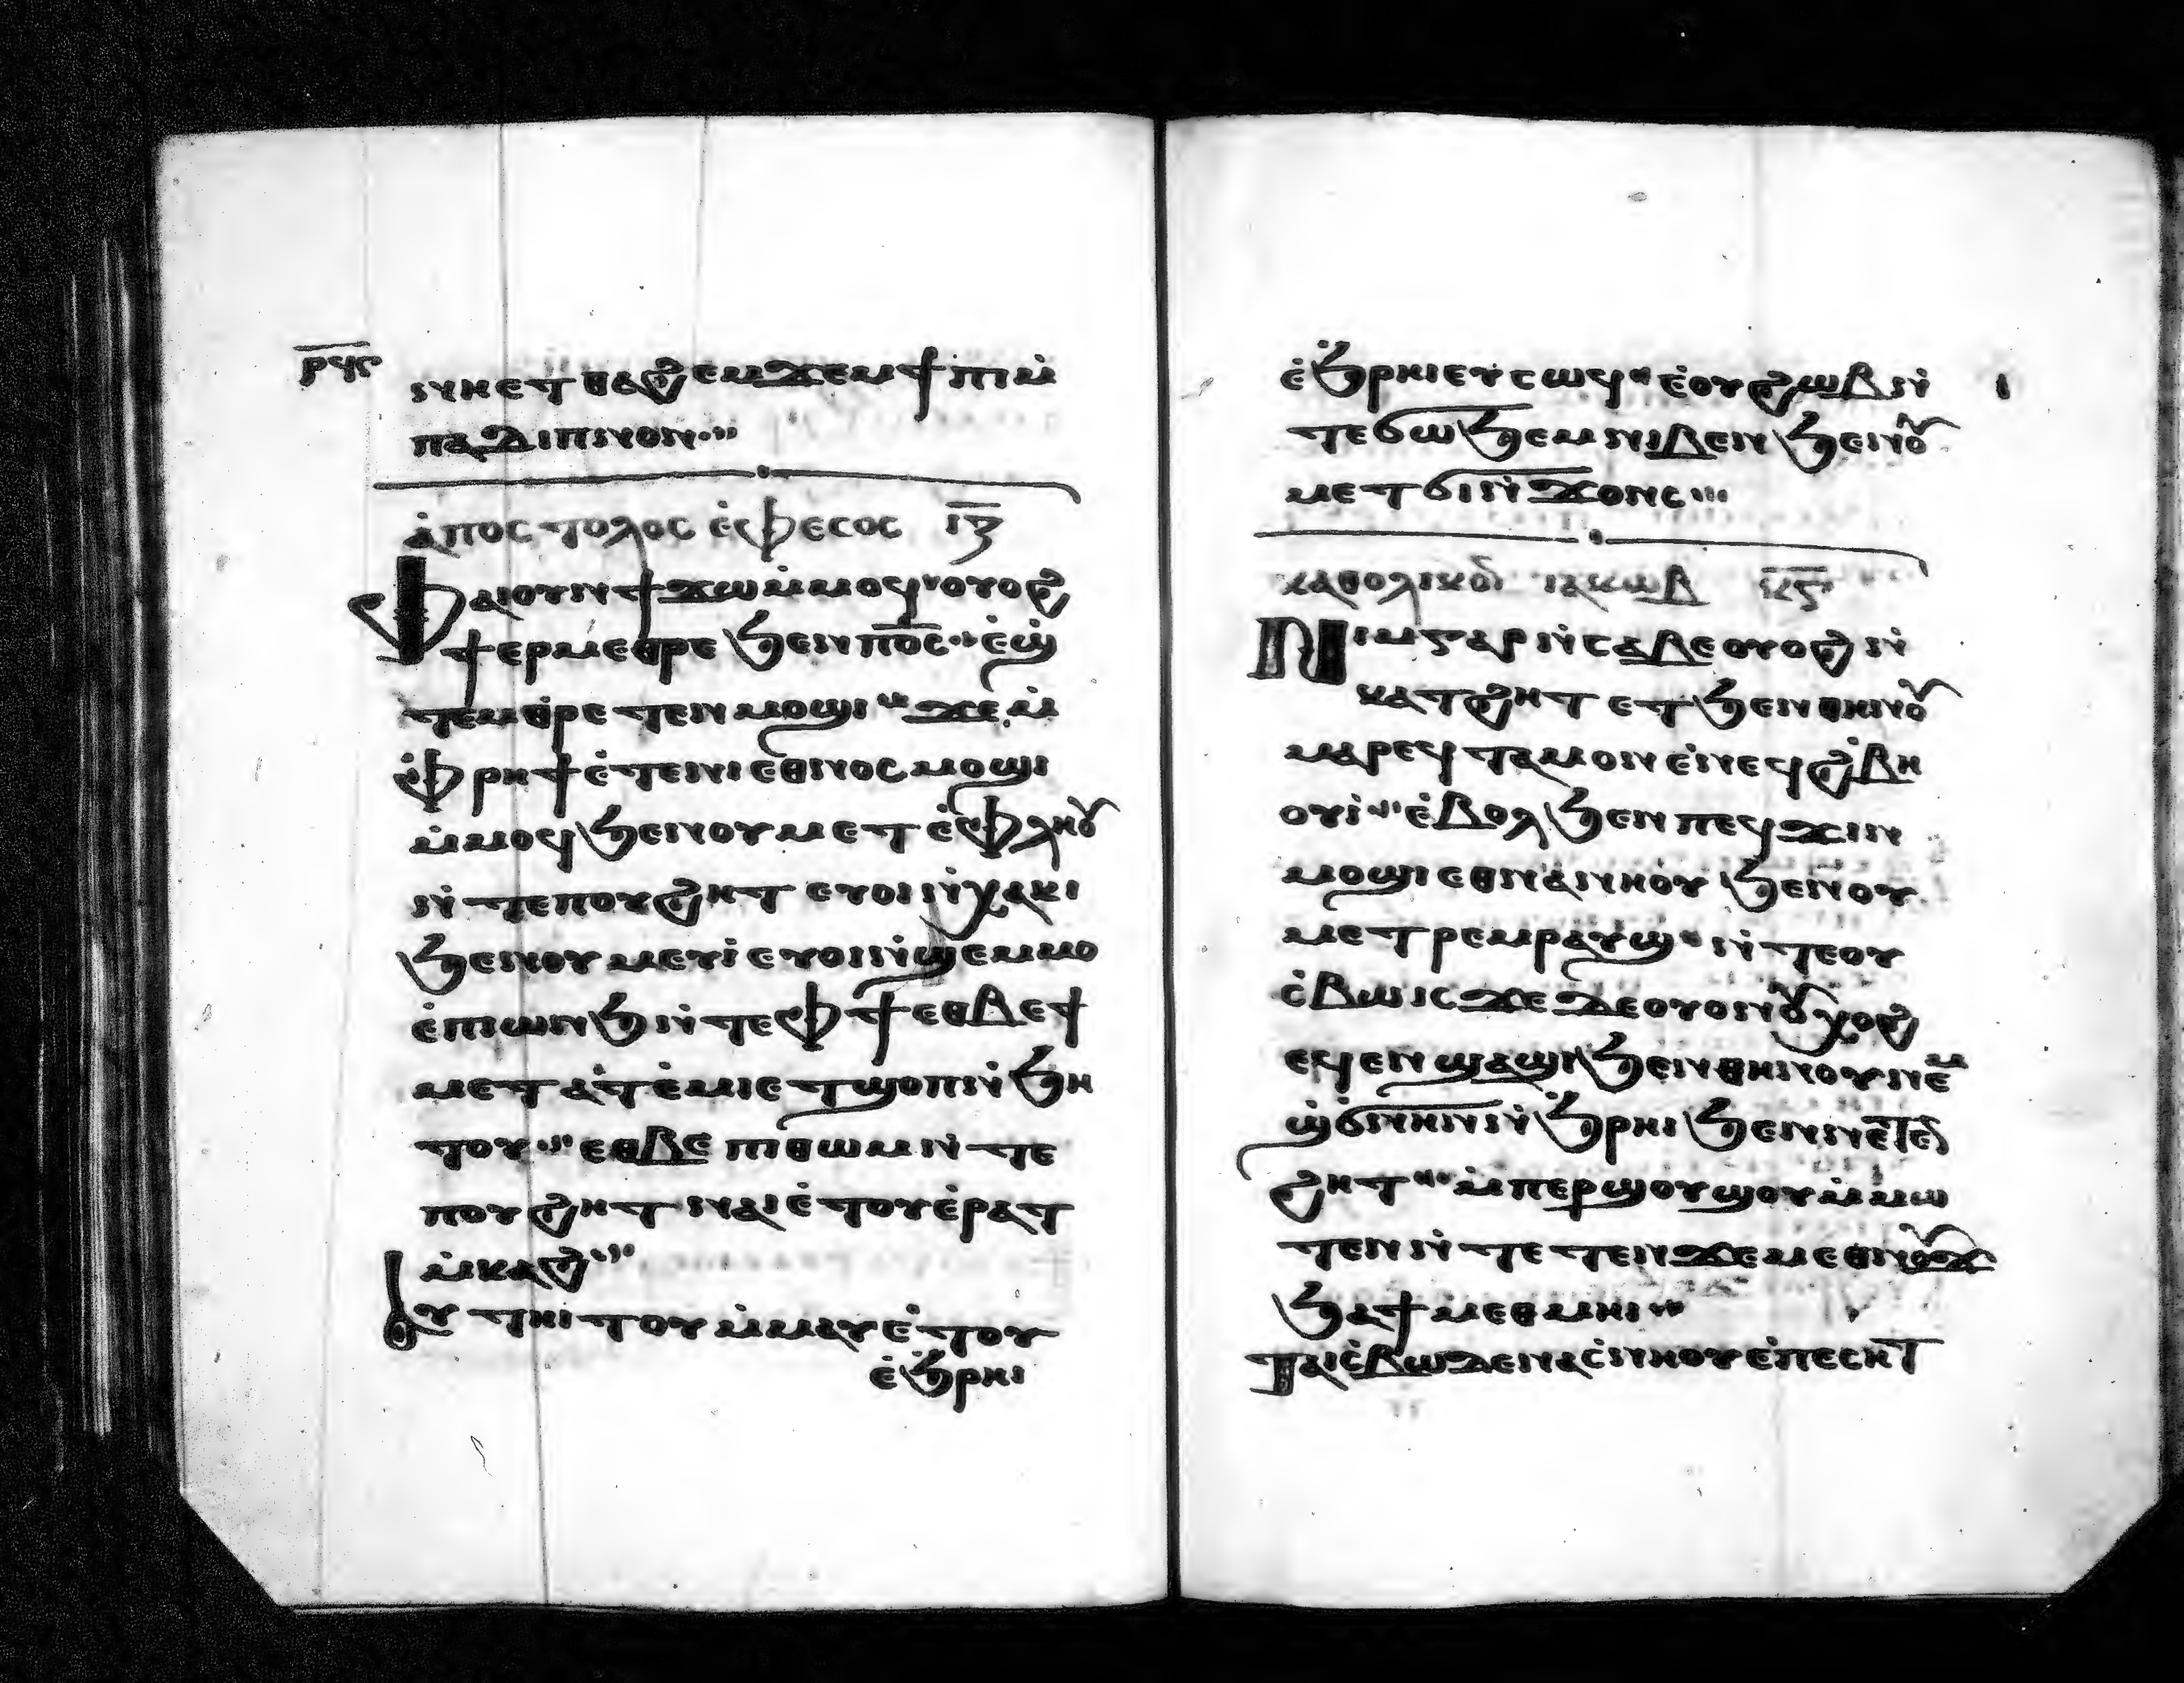 ⲣϥⲋ
ⲛⲏⲉⲧⲑⲁϩⲉⲙϫⲉⲙϯⲡⲓⲙ̇
ⲡⲁⲇⲓⲡⲛⲟⲛ
ⲁ̇ⲡⲟⲥⲧⲟⲗⲟⲥ ⲉ̇ⲫⲉⲥⲟⲥ ⲓⲍ
Ⲫⲁⲓⲟⲩⲛϯϫⲱⲙ̇ⲙⲟϥ ⲟⲩⲟϩ
ϯⲉⲣⲙⲉⲑⲣⲉ ϧⲉⲛⲡⲟ̅ⲥ̅ ⲉ̇ϣ
ⲧⲉⲙⲑⲣⲉ ⲧⲉⲛⲙⲟϣⲓ ϫⲉ ⲙ̇
ⲫ̇ⲣⲏϯ ⲉ̇ⲧⲉⲛⲓⲉⲑⲛⲟⲥ ⲙⲟϣⲓ
ⲙ̇ⲙⲟϥ ϧⲉⲛⲟⲩⲙⲉⲧⲉ̇ⲫⲗⲏⲟⲩ
ⲛ̇ⲧⲉⲡⲟⲩϩⲏⲧ ⲉⲩⲟⲓⲛ̇ⲭⲁⲕⲓ
ϧⲉⲛⲟⲩⲙⲉⲩⲓ̇ ⲉⲩⲟⲓⲛ̇ϣⲉⲙⲙⲟ
ⲉ̇ⲡⲓⲱⲛϧ ⲛ̇ⲧⲉⲫϯ ⲉⲑⲃⲉϯ
ⲙⲉⲧⲁⲧⲉ̇ⲙⲓ ⲉⲧϣⲟⲡ ⲛ̇ϧⲏ
ⲧⲟⲩ ⲉⲑⲃⲉ ⲡⲓⲑⲱⲙ ⲛ̇ⲧⲉ
ⲡⲟⲩϩⲏⲧ ⲛⲁⲓ ⲉ̇ⲧⲟⲩⲉ̇ⲣⲁⲧ
ⲙ̇ⲕⲁϩ
ⲟⲩ ⲧⲏⲓⲧⲟⲩ ⲙ̇ⲙⲁⲩ ⲉ̇ⲧⲟⲩ
ⲉ̇ϧⲣⲏⲓ
ⲉ̇ϧⲣⲏⲓ ⲉⲩⲥⲱϥ ⲉ̇ⲟⲩϩⲱⲃ ⲛ̇
ⲧⲉϭⲱϧⲉⲙ ⲛⲓⲃⲉⲛ ϧⲉⲛⲟⲩ
ⲙⲉⲧϭⲓⲛ̇ϫⲟⲛⲥ
ⲕⲁⲑⲟⲗⲓⲕⲟⲛ ⲓⲁⲕⲱⲃ ⲕⲋ
Ⲛⲓⲙⲅⲁⲣ ⲛ̇ⲥⲁⲃⲉ ⲟⲩⲟϩ ⲛ̇
ⲕⲁⲧϩⲏⲧ ⲉⲧϧⲉⲛⲑⲏⲛⲟⲩ
ⲙⲁⲣⲉϥⲧⲁⲙⲟⲛ ⲉ̇ⲛⲉϥϩ̇ⲃⲏ
ⲟⲩⲓ̇ ⲉ̇ⲃⲟⲗ ϧⲉⲛ ⲡⲉϥϫⲓⲛ
ⲙⲟϣⲓ ⲉⲑⲛⲁⲛⲏⲟⲩ ϧⲉⲛⲟⲩ
ⲙⲉⲧⲣⲉⲙⲣⲁⲩϣ ⲛ̇ⲧⲉⲟⲩ
ⲥ̇ⲃⲱ ⲓⲥϫⲉ ⲇⲉ ⲟⲩⲟⲛ ⲟⲩⲭⲟϩ
ⲉϥⲉⲛϣⲁϣⲓ ϧⲉⲛⲑⲏⲛⲟⲩ ⲛⲉⲙ
ϣ̇ϭⲛⲏⲛ ⲛ̇ϧⲣⲏⲓ ϧⲉⲛⲛⲉⲧⲉⲛ
ϩⲏⲧ ⲙ̇ⲡⲉⲣϣⲟⲩϣⲟⲩ ⲙ̇ⲙⲱ
ⲧⲉⲛ ⲛ̇ⲧⲉⲧⲉⲛϫⲉⲙⲉⲑⲛⲟⲩϫ
ϧⲁϯⲙⲉⲑⲙⲏⲓ
ⲧⲁⲓⲥ̇ⲃⲱ ⲇⲉ ⲛⲁⲥⲛⲏⲟⲩ ⲉ̇ⲡⲉⲥⲏⲧ